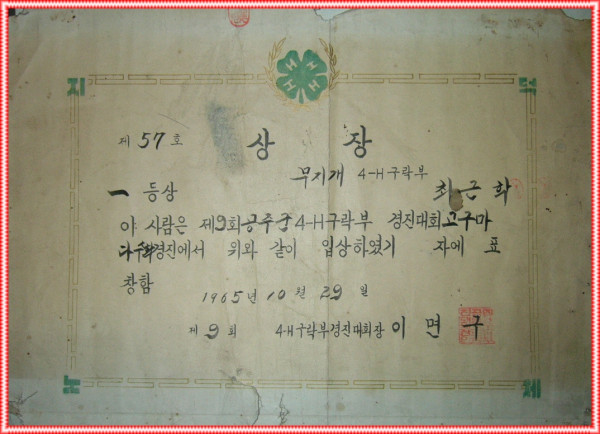 H H H H
지 덕
제 57 호 상 장
무지개 4-H구락부
一 등상 최근학
야 사람은 제9회공주군4-H구락부 경진대회고구마
다수확경진에서 위와 같이 입상하였기 자에 표
창함
1965년 10월 29일
제 9 회 4-H구락부경진대회장 이 면 구
노 체